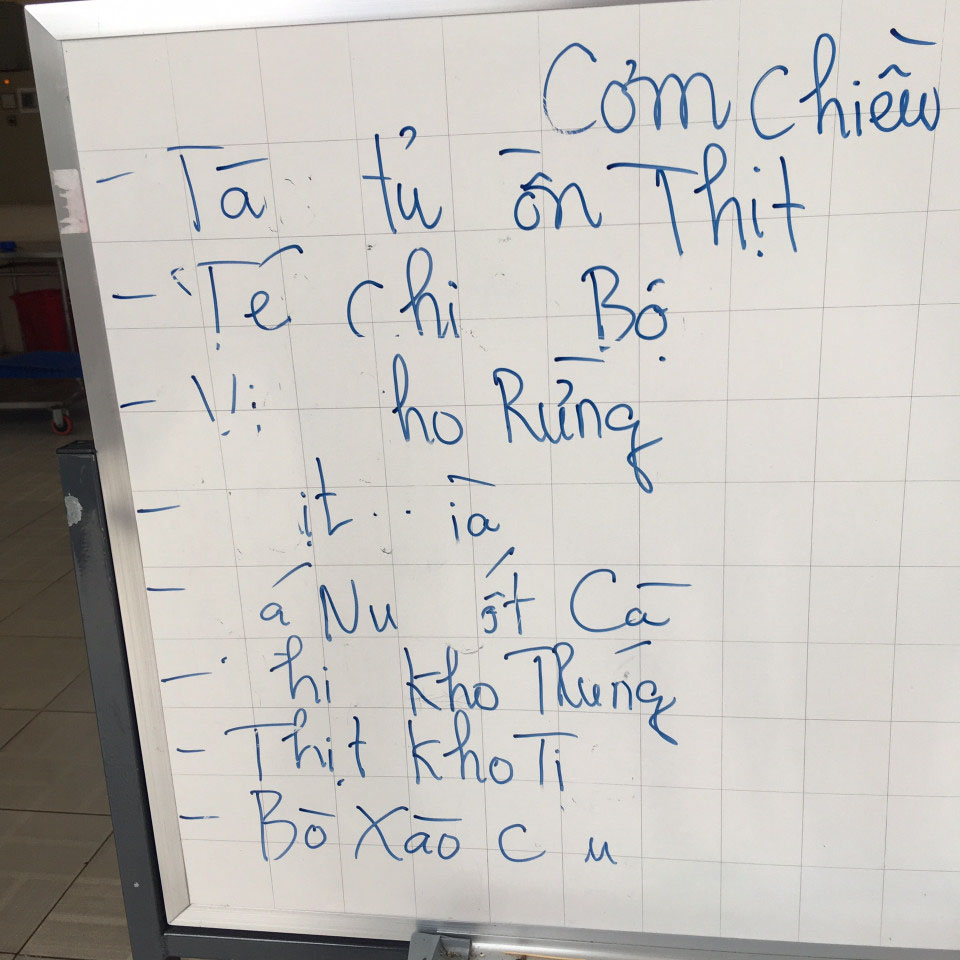 Cơm chiều
- Tà tủ ồn Thịt
- Tẹ chi Bộ
- Vị ho Rừng
- ịt ià
- á Nu ốt Cà
- hi kho Trứng
- Thịt kho Ti
- Bò Xào C u